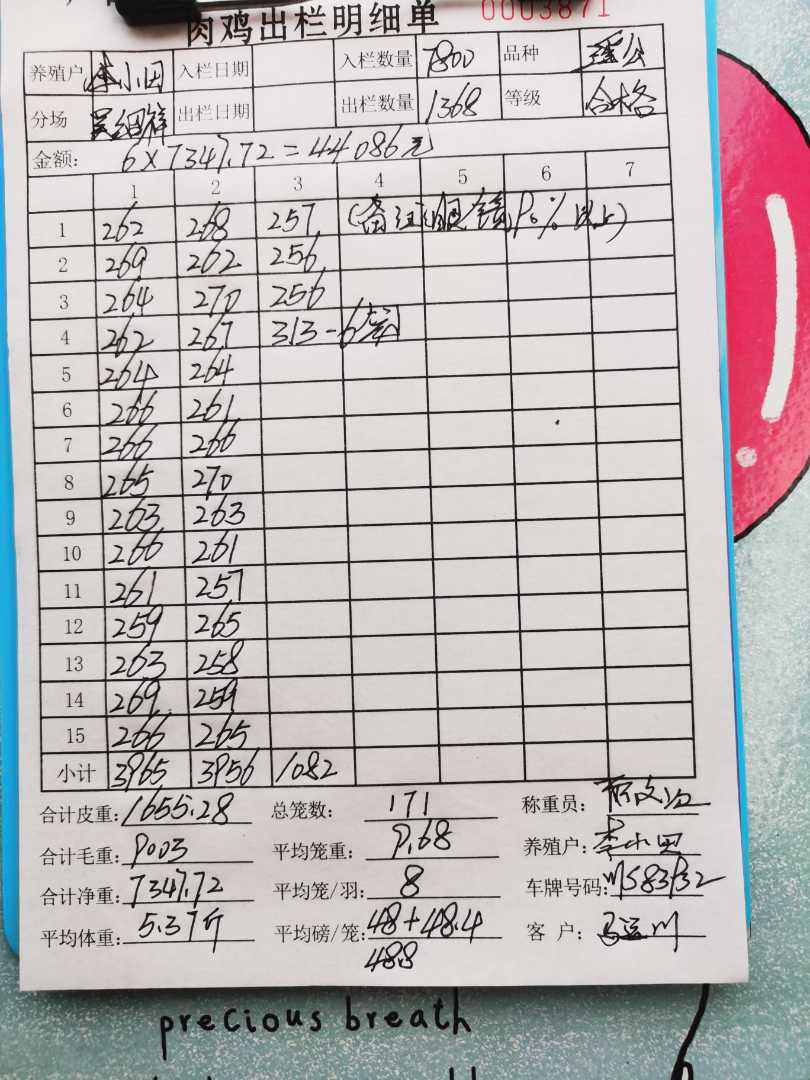 肉鸡出栏明细单 0003871
养殖户 李小田 入栏日期 入栏数量 7800 品种 瑶公
分场 吴细祥 出栏日期 出栏数量 1368 等级 合格
金额: 6×7347.72=44086元
1 2 3 4 5 6 7
1 262 268 257 (备注: 90%以上)
2 269 262 256
3 264 270 256
4 262 267 313-6笼
5 264 264
6 266 261
7 266 266
8 265 270
9 263 263
10 266 261
11 261 257
12 259 265
13 263 258
14 269 259
15 266 265
小计 3965 3956 1082
合计皮重: 1655.28 总笼数: 171 称重员:
合计毛重: 9003 平均笼重: 9.68 养殖户: 李小田
合计净重: 7347.72 平均笼/羽: 8 车牌号码:
平均体重: 5.37斤 平均磅/笼: 48+48.4 客 户:
488
precious breath